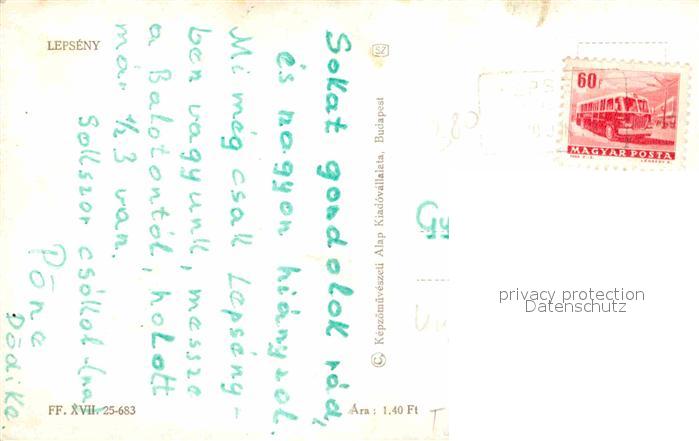 LEPSÉNY
Sokat gondolok rád,
és nagyon hiányzol.
Mi még csak Lepsény-
ben vagyunk, messze
a Balatontól, holott
már 1/2 3 van.
Sokszor csókol
Póna
Dódika
FF. XVII. 25-683
© Képzőművészeti Alap Kiadóvállalata, Budapest
SZ
Ára: 1,40 Ft
60f
MAGYAR POSTA
privacy protection
Datenschutz